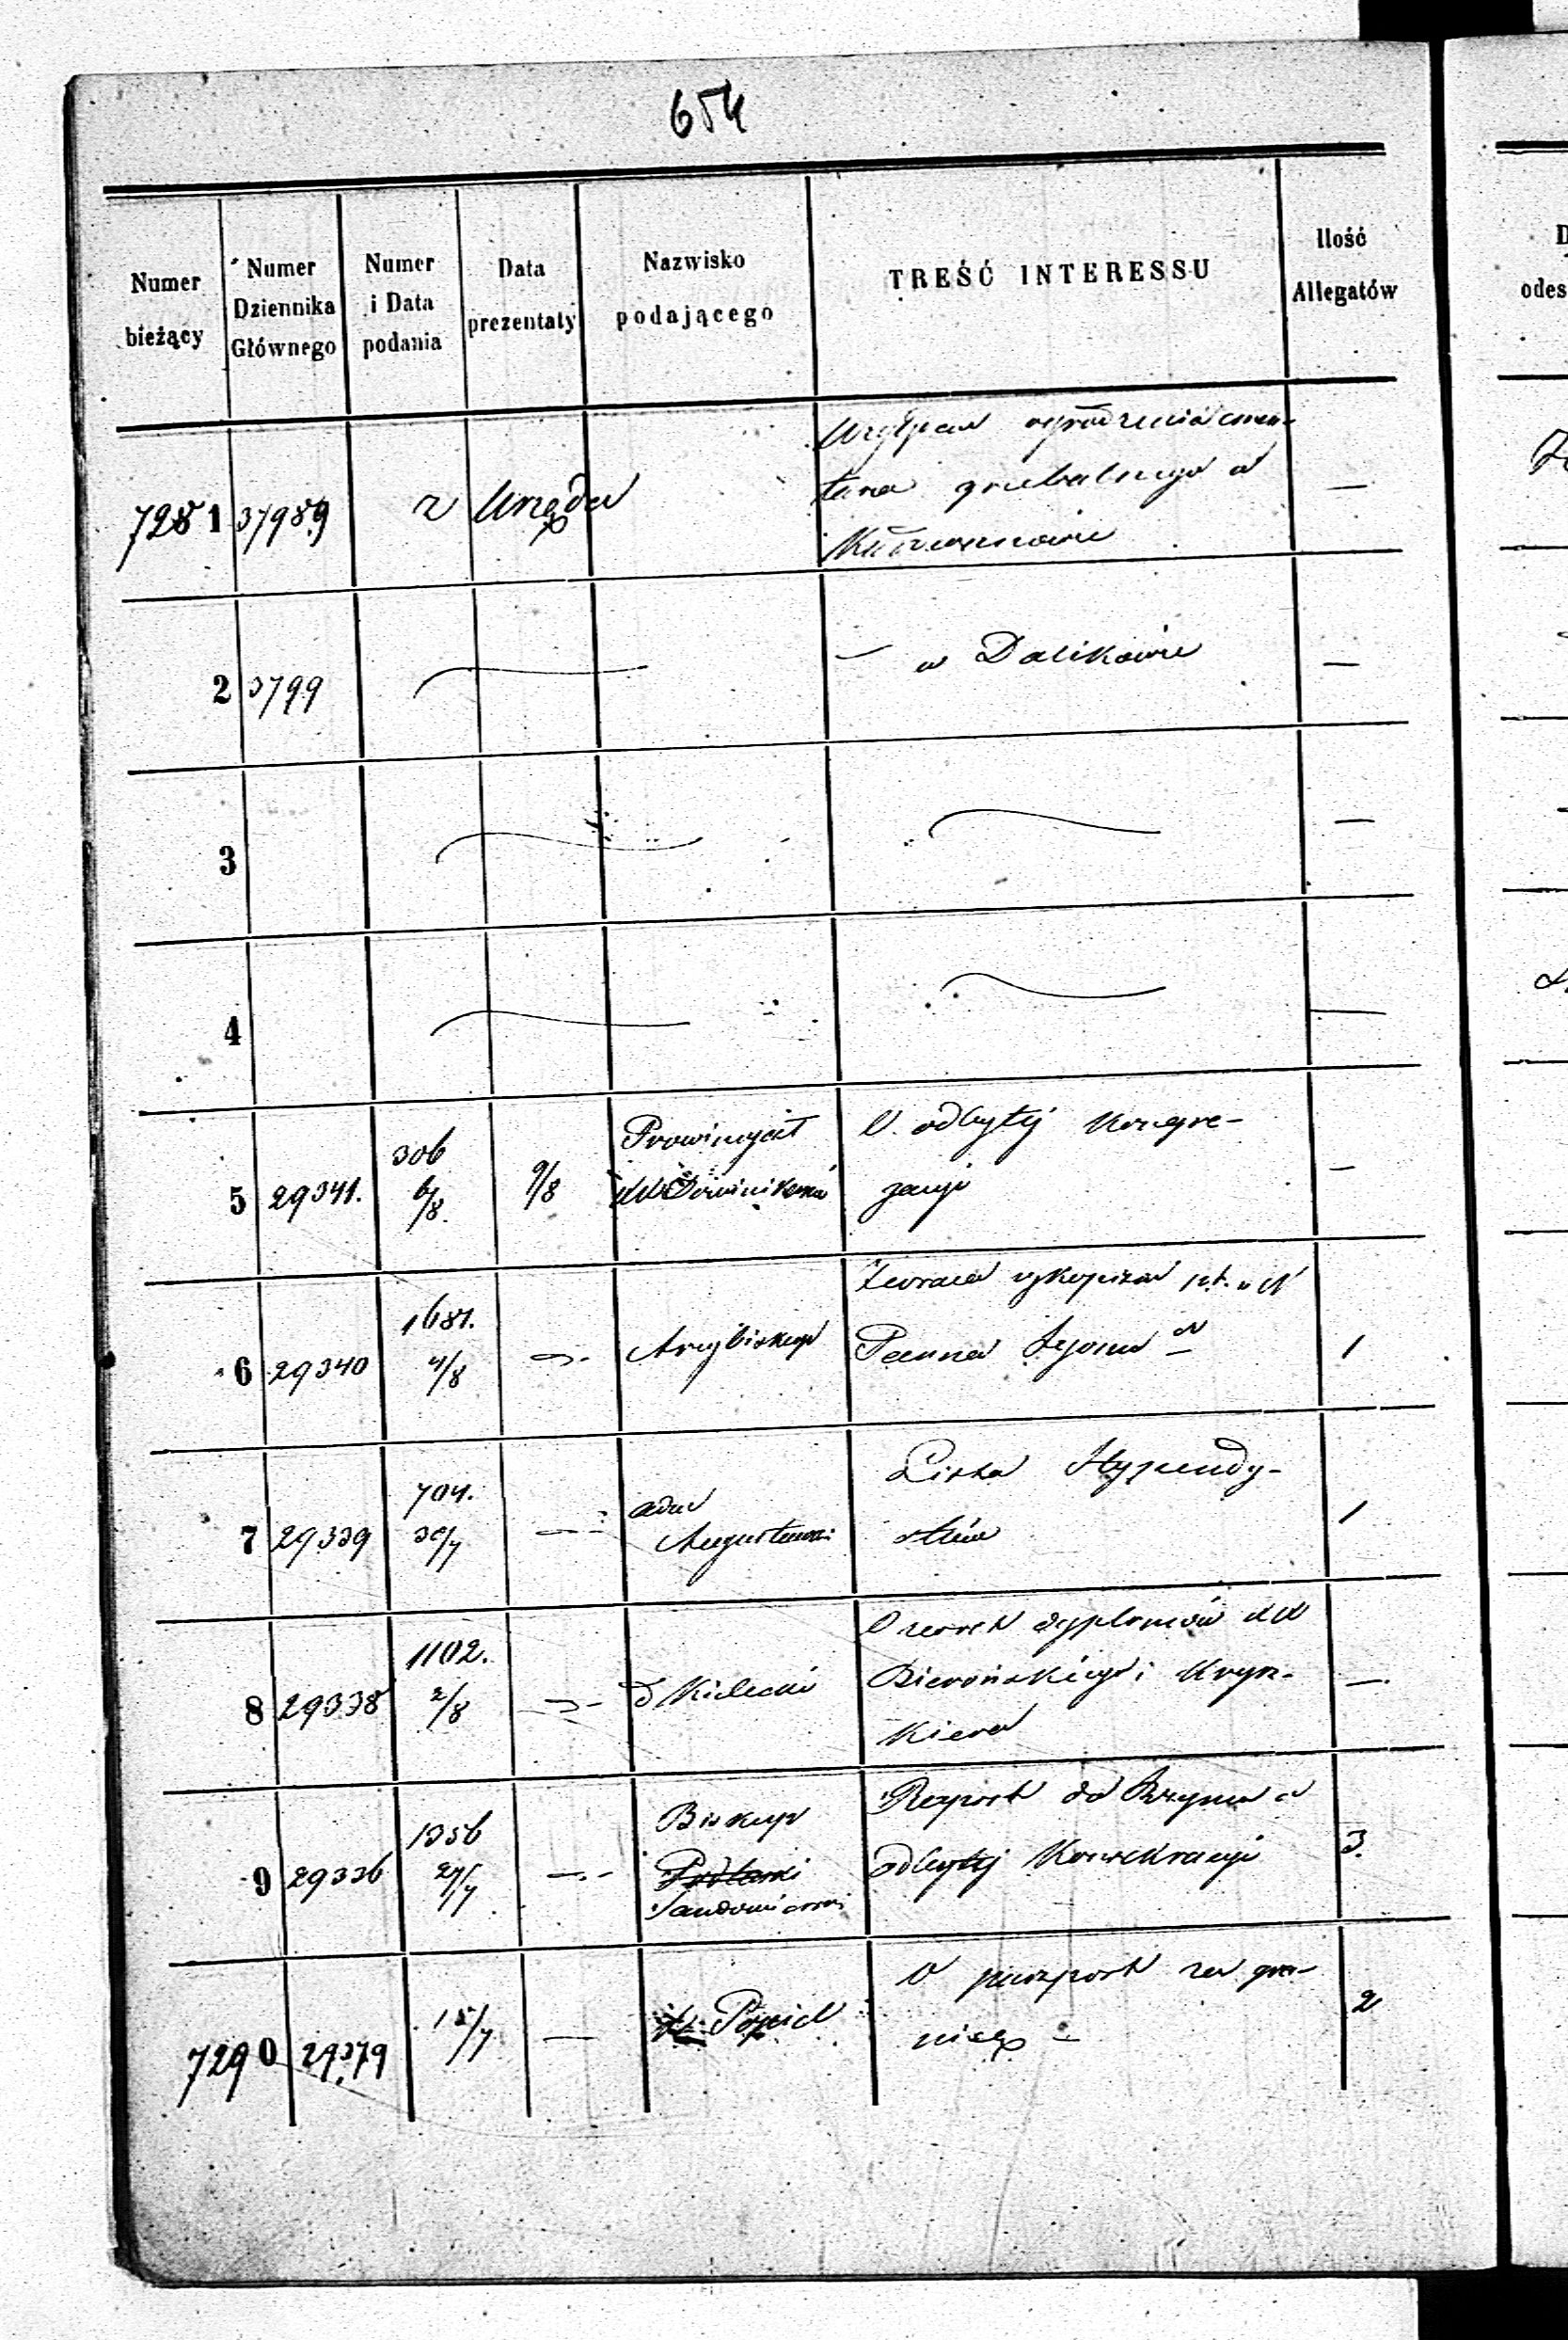 654
Numer bieżący
Numer Dziennika Głównego
Numer i Data podania
Data prezentaty
Nazwisko podającego
TREŚĆ INTERESSU
Ilość Allegatów
7281 37989 z Urzędu
ogrodzenia cmen-
tarza grzebalnego w
—
2 3799
— w Dalikowie
—
3
—
4
—
5 29341. 306 6/8. 9/8
Prowincyał
XX Dominikanów
O odbytej Kongre-
gacyi
—
6 29340 1681. 4/8
Arcybiskup
Zwraca rękopism pt.
Panna
1
7 29339 704. 30/7
adm
Augustowski
Lista Stypendy-
stów
1
8 29338 1102. 2/8
d Kielecki
O zwrot dyplomów XX
Bierońskiego i Kryn-
kiera
—
9 29336 1356 27/7
Biskup
Podlaski
Sandomierski
Raport do Rzymu o
odbytej Konsekracyi
3.
7290 29379 15/7 —
X. Popiel
O paszport za gra-
nicę —
2